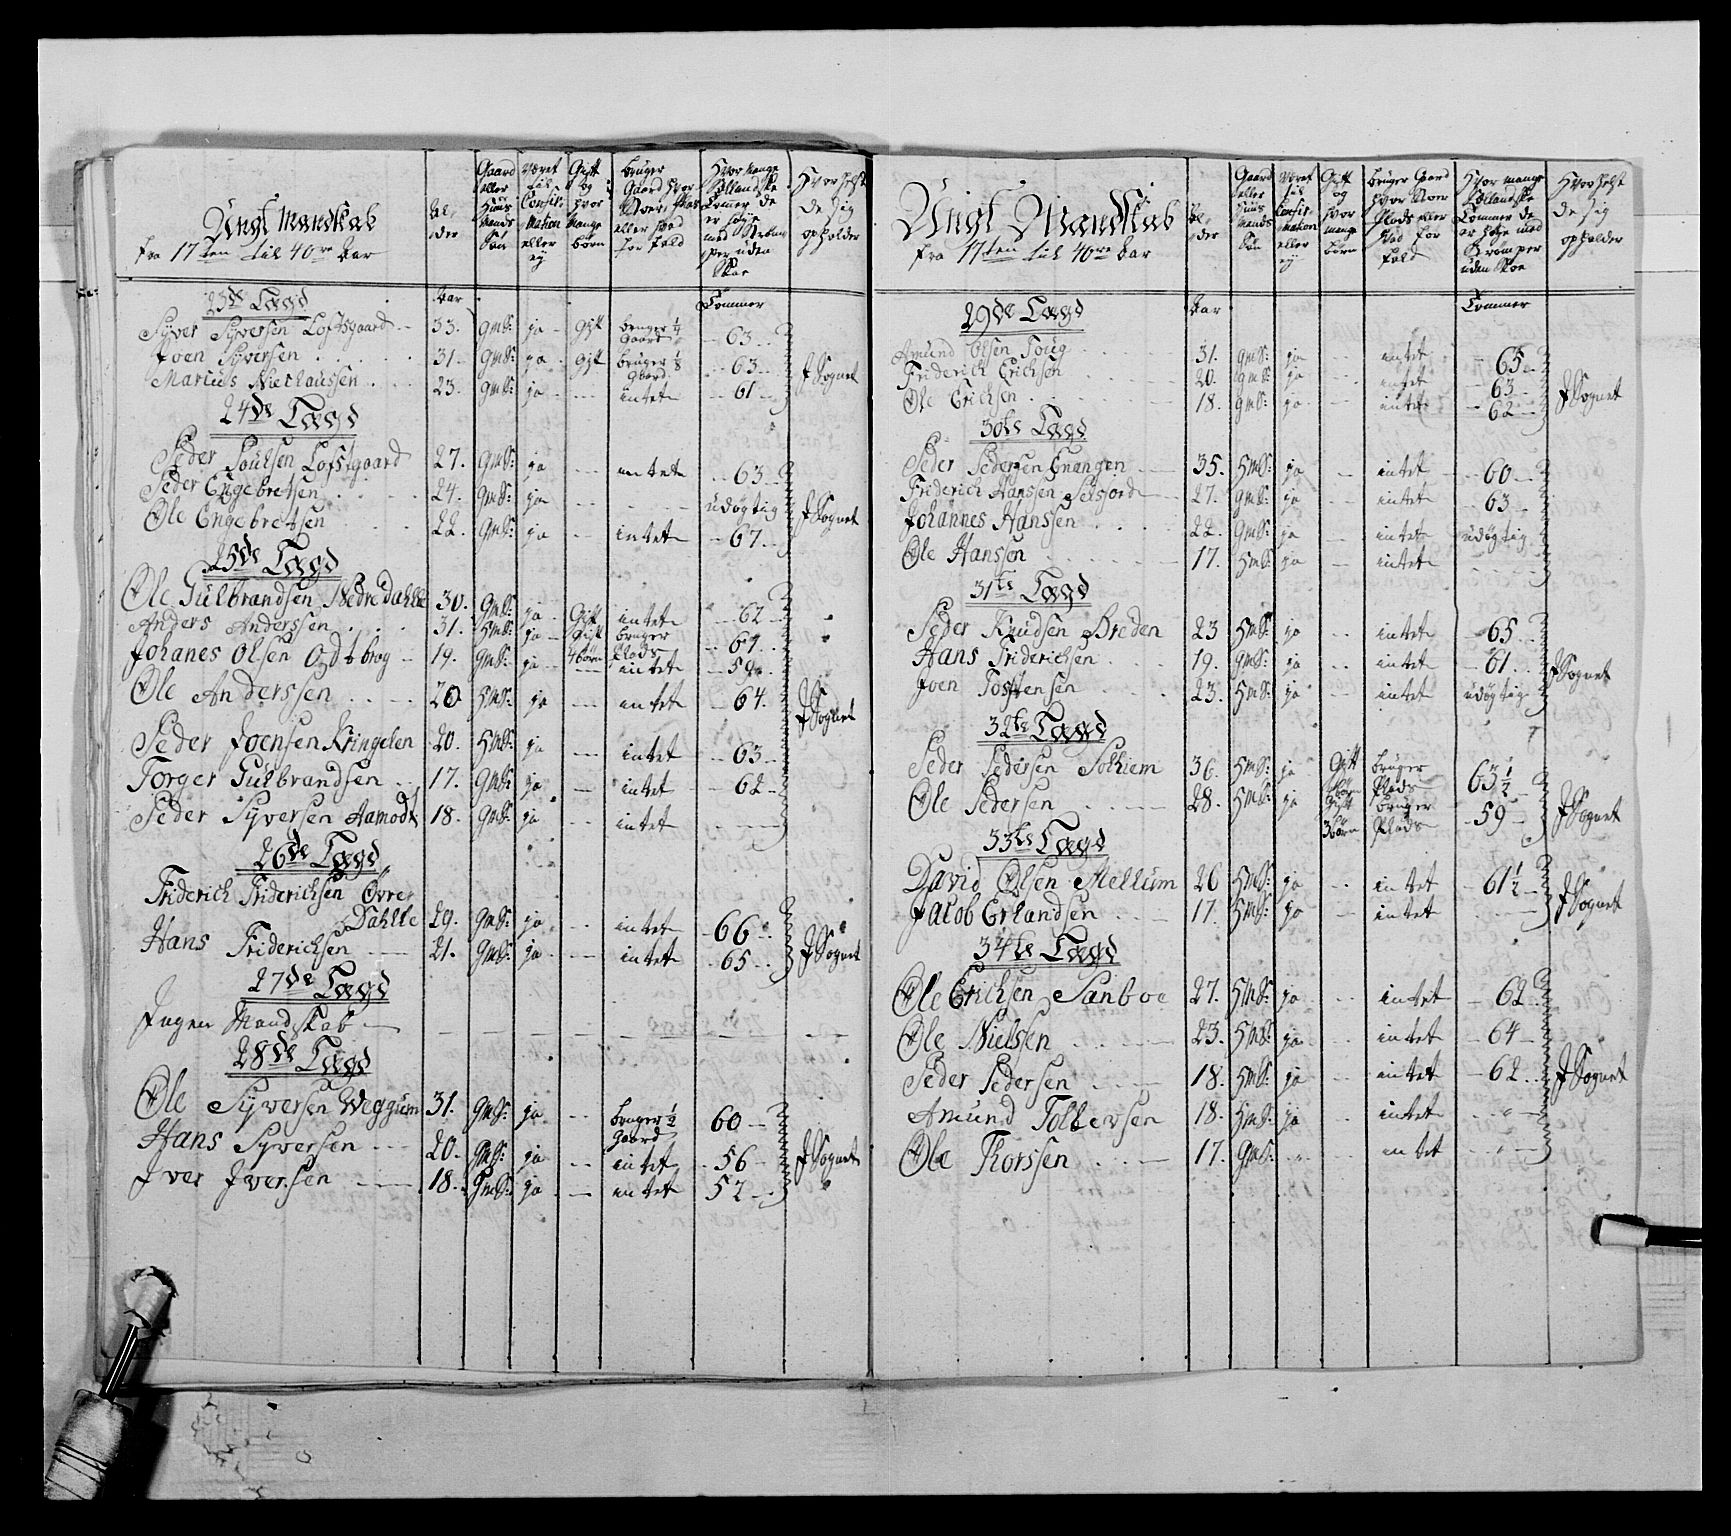 Ungt Mandskab
fra 17ten til 40re Aar
Al-
der
Gaard
eller
Huus
Mands
Søn
Været
til
Confir-
mation
eller
ey
Gift
og
hvor
mange
børn
bruger
Gaard hvor
stoer, Plads
eller hvad
for fald
Hvor mange
Hollandske
Tommer de
er høye
med Strøm-
per uden
Skoe
Hvor helst
de sig
opholder
Aar
Tommer
23de Lægd
Syver Syversen Loftsgaard 33. GmS: ja Gift bruger 1/4 Gaard 63
Joen Syversen 31. GmS: ja Gift bruger 1/8 Gaard 63
Marius Nielsaussen 23. GmS: ja intet 61 J Sognet
24de Lægd
Peder Poulsen Lofstgaard 27. GmS: ja intet 63
Peder Engebretsen 24. GmS: ja udøgtig
Ole Engebretsen 22. GmS: ja intet 67 J Sognet
25de Lægd
Ole Gulbrandsen Nedre Dahlle 30. GmS: ja Gift intet 62
Anders Anderssen 31. HmS: ja Gift 4 børn bruger Plads 61
Johanes Olsen Odtbog 19. GmS: ja intet 59
Ole Anderssen 20 HmS: ja intet 64 J Sognet
Peder Joensen Kringelen 20. HmS: ja intet 63
Torger Gulbrandsen 17. GmS: ja intet 62
Peder Syversen Aamodt 18. GmS: ja intet
26de Lægd
Friderich Friderichsen Øvre
Dahlle 29. GmS: ja intet 66
Hans Friderichsen 21. GmS: ja intet 65 J Sognet
27de Lægd
Jngen Mandskab
28de Lægd
Ole Syversen Weggum 31. GmS: ja bruger 1/2 Gaard 60
Hans Syversen 20. GmS: ja intet 56 J Sognet
Jver Jversen 18. GmS: ja intet 52
Ungt Mandskab
fra 17ten til 40re Aar
Al-
der
Gaard
eller
Huus
Mands
Søn
Været
til
Confir-
mation
eller
ey
Gift
og
hvor
mange
børn
bruger Gaard
hvor stoer
Plads eller
hvad for
fald
Hvor mange
Hollandske
Tommer de
er høye med
Strømper
uden Skoe
Hvor helst
de sig
opholder
Aar
Tommer
29de Lægd
Amund Olsen Toug 31. GmS: ja intet 65
Friderich Erichsen 20. GmS: ja intet 63 J Sognet
Ole Erichsen 18. GmS: ja intet 62
30te Lægd
Peder Pedersen Enangen 35. HmS: ja intet 60
Friderich Hanssen Selsjord 27. GmS: ja intet 63
Johannes Hanssen 22. GmS: ja intet udøgtig
Ole Hanssen 17. HmS: ja intet
31te Lægd
Peder Knudsen Breden 23 HmS: ja intet 65
Hans Friderichsen 19. GmS: ja intet 61 J Sognet
Joen Tostensen 23. HmS: ja intet udøgtig
32te Lægd
Peder Pedersen Solhiem 36. HmS: ja Gift børn bruger Plads 63 1/2
Ole Pedersen 28. HmS: ja Gift 3 børn bruger Plads 59 J Sognet
33te Lægd
David Olsen Mellum 26 HmS: ja intet 61 1/2
Jacob Erlandsen 17. HmS: ja intet J Sognet
34te Lægd
Ole Erichsen Sanboe 27. HmS: ja intet 62
Ole Nielsen 23. HmS: ja intet 64
Peder Pedersen 18. HmS: ja intet 62 J Sognet
Amund Tollevsen 18. HmS: ja intet
Ole Thorssen 17. GmS: intet